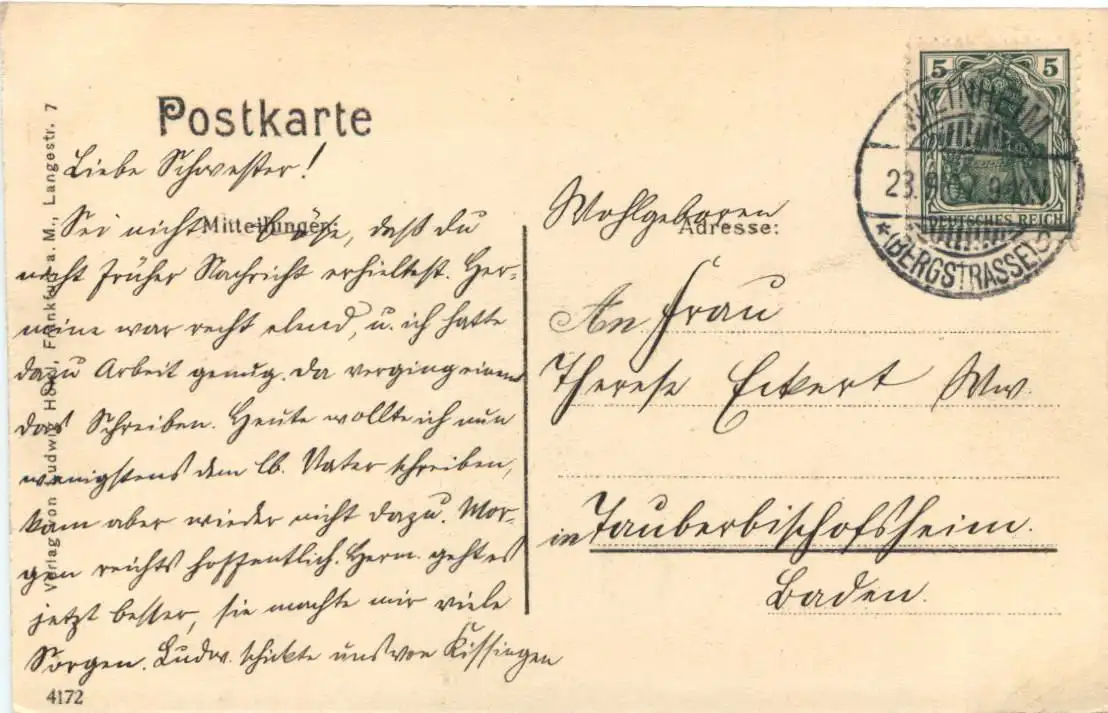 Postkarte
Liebe Schwester!
Mitteilungen:
Sei nicht böse, daß du
nicht früher Nachricht erhieltest. Her-
mine war recht elend, u. ich hatte
dazu Arbeit genug. Da verging einem
das Schreiben. Heute wollte ich nun
wenigstens dem lb. Vater schreiben,
kam aber wieder nicht dazu. Mor-
gen reichts hoffentlich. Herm. geht es
jetzt besser, sie machte mir viele
Sorgen. Ludw. schickte uns von Kissingen
4172
Verlag von Ludwig Frankfurt a. M., Langestr. 7
5 5
DEUTSCHES REICH
WEINHEIM
23.9
(BERGSTRASSE)
Adresse:
Wohlgeboren
An Frau
Therese Eckert Ww.
in Tauberbischofsheim.
Baden.